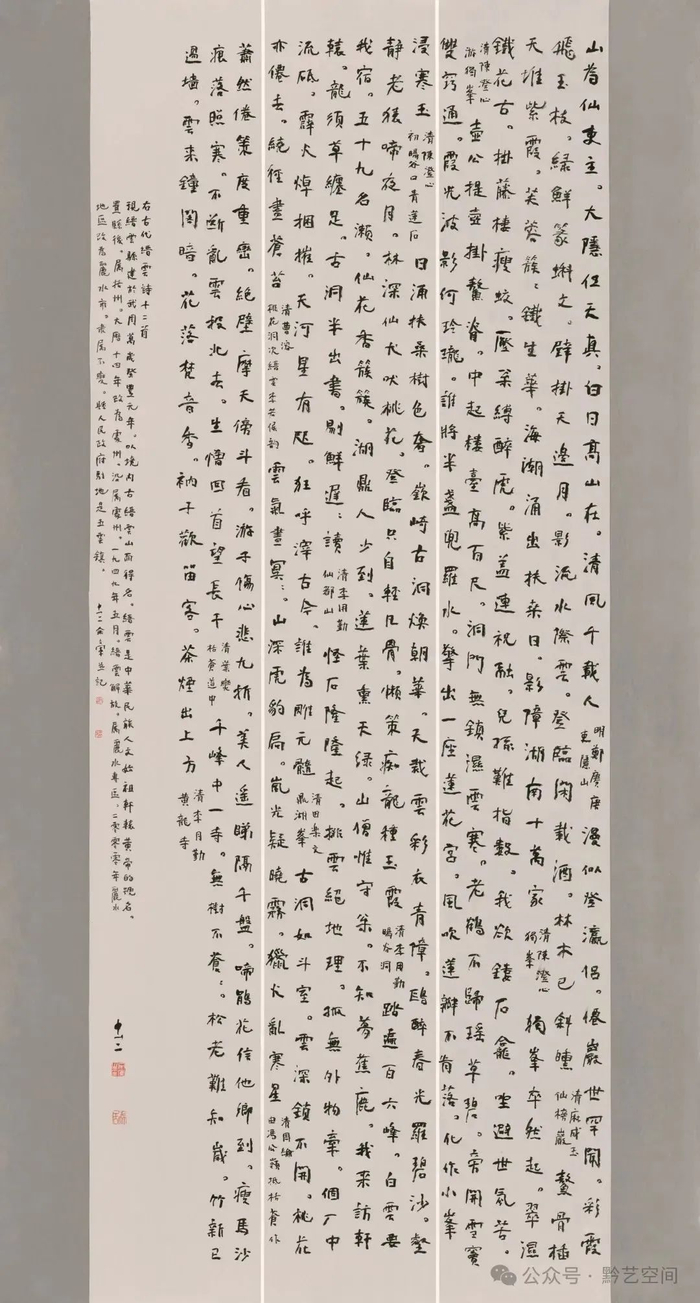 山為仙吏主。大隱任天真。白日高山在。清風千載人 明鄭賡唐 吏隱山 漫似登瀛侶。僊巖世罕開。彩霞
飛玉枝。綠鮮篆蝌文。壁掛天邊月。影流水際雲。登臨閑載酒。林木已斜曛 清麻成玉 仙榜巖 鰲骨插
天堆紫霞。芙蓉簇簇鐵生華。海潮涌出扶桒日。影障湖南十萬家 清陳澄心 獨峯 獨峯卒然起。翠濕
鐵花古。掛藤棲瘦蛟。壓葉縛醉虎。紫蓋連祝融。兒孫難指數。我欲鏤石龕。坐避世氛苦。
清陳澄心 游獨峯 壺公提壺掛鰲脊。中起樓臺高百尺。洞門無鎖濕雲寒。老鶴不歸瑶草碧。旁開雪竇
雙竅通。霞光波影何玲瓏。誰將半盞兜羅水。擎出一座蓮花宮。風吹蓮瓣不肯落。化作小峯
浸寒玉 清陳澄心 初暘谷口青蓮石 日涌扶桑樹色奢。嶔崎古洞煥朝華。天裁雲彩衣青障。鷗醉春光羅碧沙。壑
静老猿啼夜月。林深仙犬吠桃花。登臨只自輕凡骨。懶策痴龍種玉霞 清李用勤 暘谷洞 踏遍百六峰。白雲要
我宿。五十九名瀨。仙花香簇簇。湖鼎人少到。蓮葉熏天綠。山僧惟守茶。不知夢蕉鹿。我来訪軒
轅。龍須草纏足。古洞半出書。剔鮮遲遲讀 清李用勤 仙都山 怪石隆隆起。排雲絕地理。孤無外物牽。個厂中
流砥。霹火焯捆摧。天河星有咫。狂呼滓古今。誰為雕元髓 清田樂文 鼎湖峯 古洞如斗室。雲深鎖不開。桃花
亦僊去。繞徑盡蒼苔 清曹溶 桃花洞次縉雲李芳侯韵 雲氣晝冥冥。山深虎豹扃。嵐光疑曉霧。獵犬亂寒星 清周綸 由馮公嶺抵栝蒼作
蕭然倦策度重巒。絕壁摩天傍斗看。游子傷心悲九折。美人遥睇隔千盤。啼鵑花信他鄉到。瘦馬沙
痕落照寒。不斷亂雲投北去。生憎回首望長干 清葉燮 栝蒼道中 千峰中一寺。無樹不蒼蒼。松老難知歲。竹新已
過墻。雲来鐘閣暗。花落梵音香。衲子歡留客。茶煙出上方 清李用勤 黄龍寺
右古代縉雲詩十二首
現縉雲縣建於武周萬歲登豐元年。以境内古縉雲山而得名。縉雲是中華民族人文始祖軒轅黄帝的號名。
置縣後。屬括州。大曆十四年改為處州。沿屬處州。一九四九年五月。縉雲解放。屬麗水專區。二〇〇〇年麗水
地區改為麗水市。隶屬不變。縣人民政府駐地是五雲鎮。 十二 並記
十二
公众号·黔艺空间